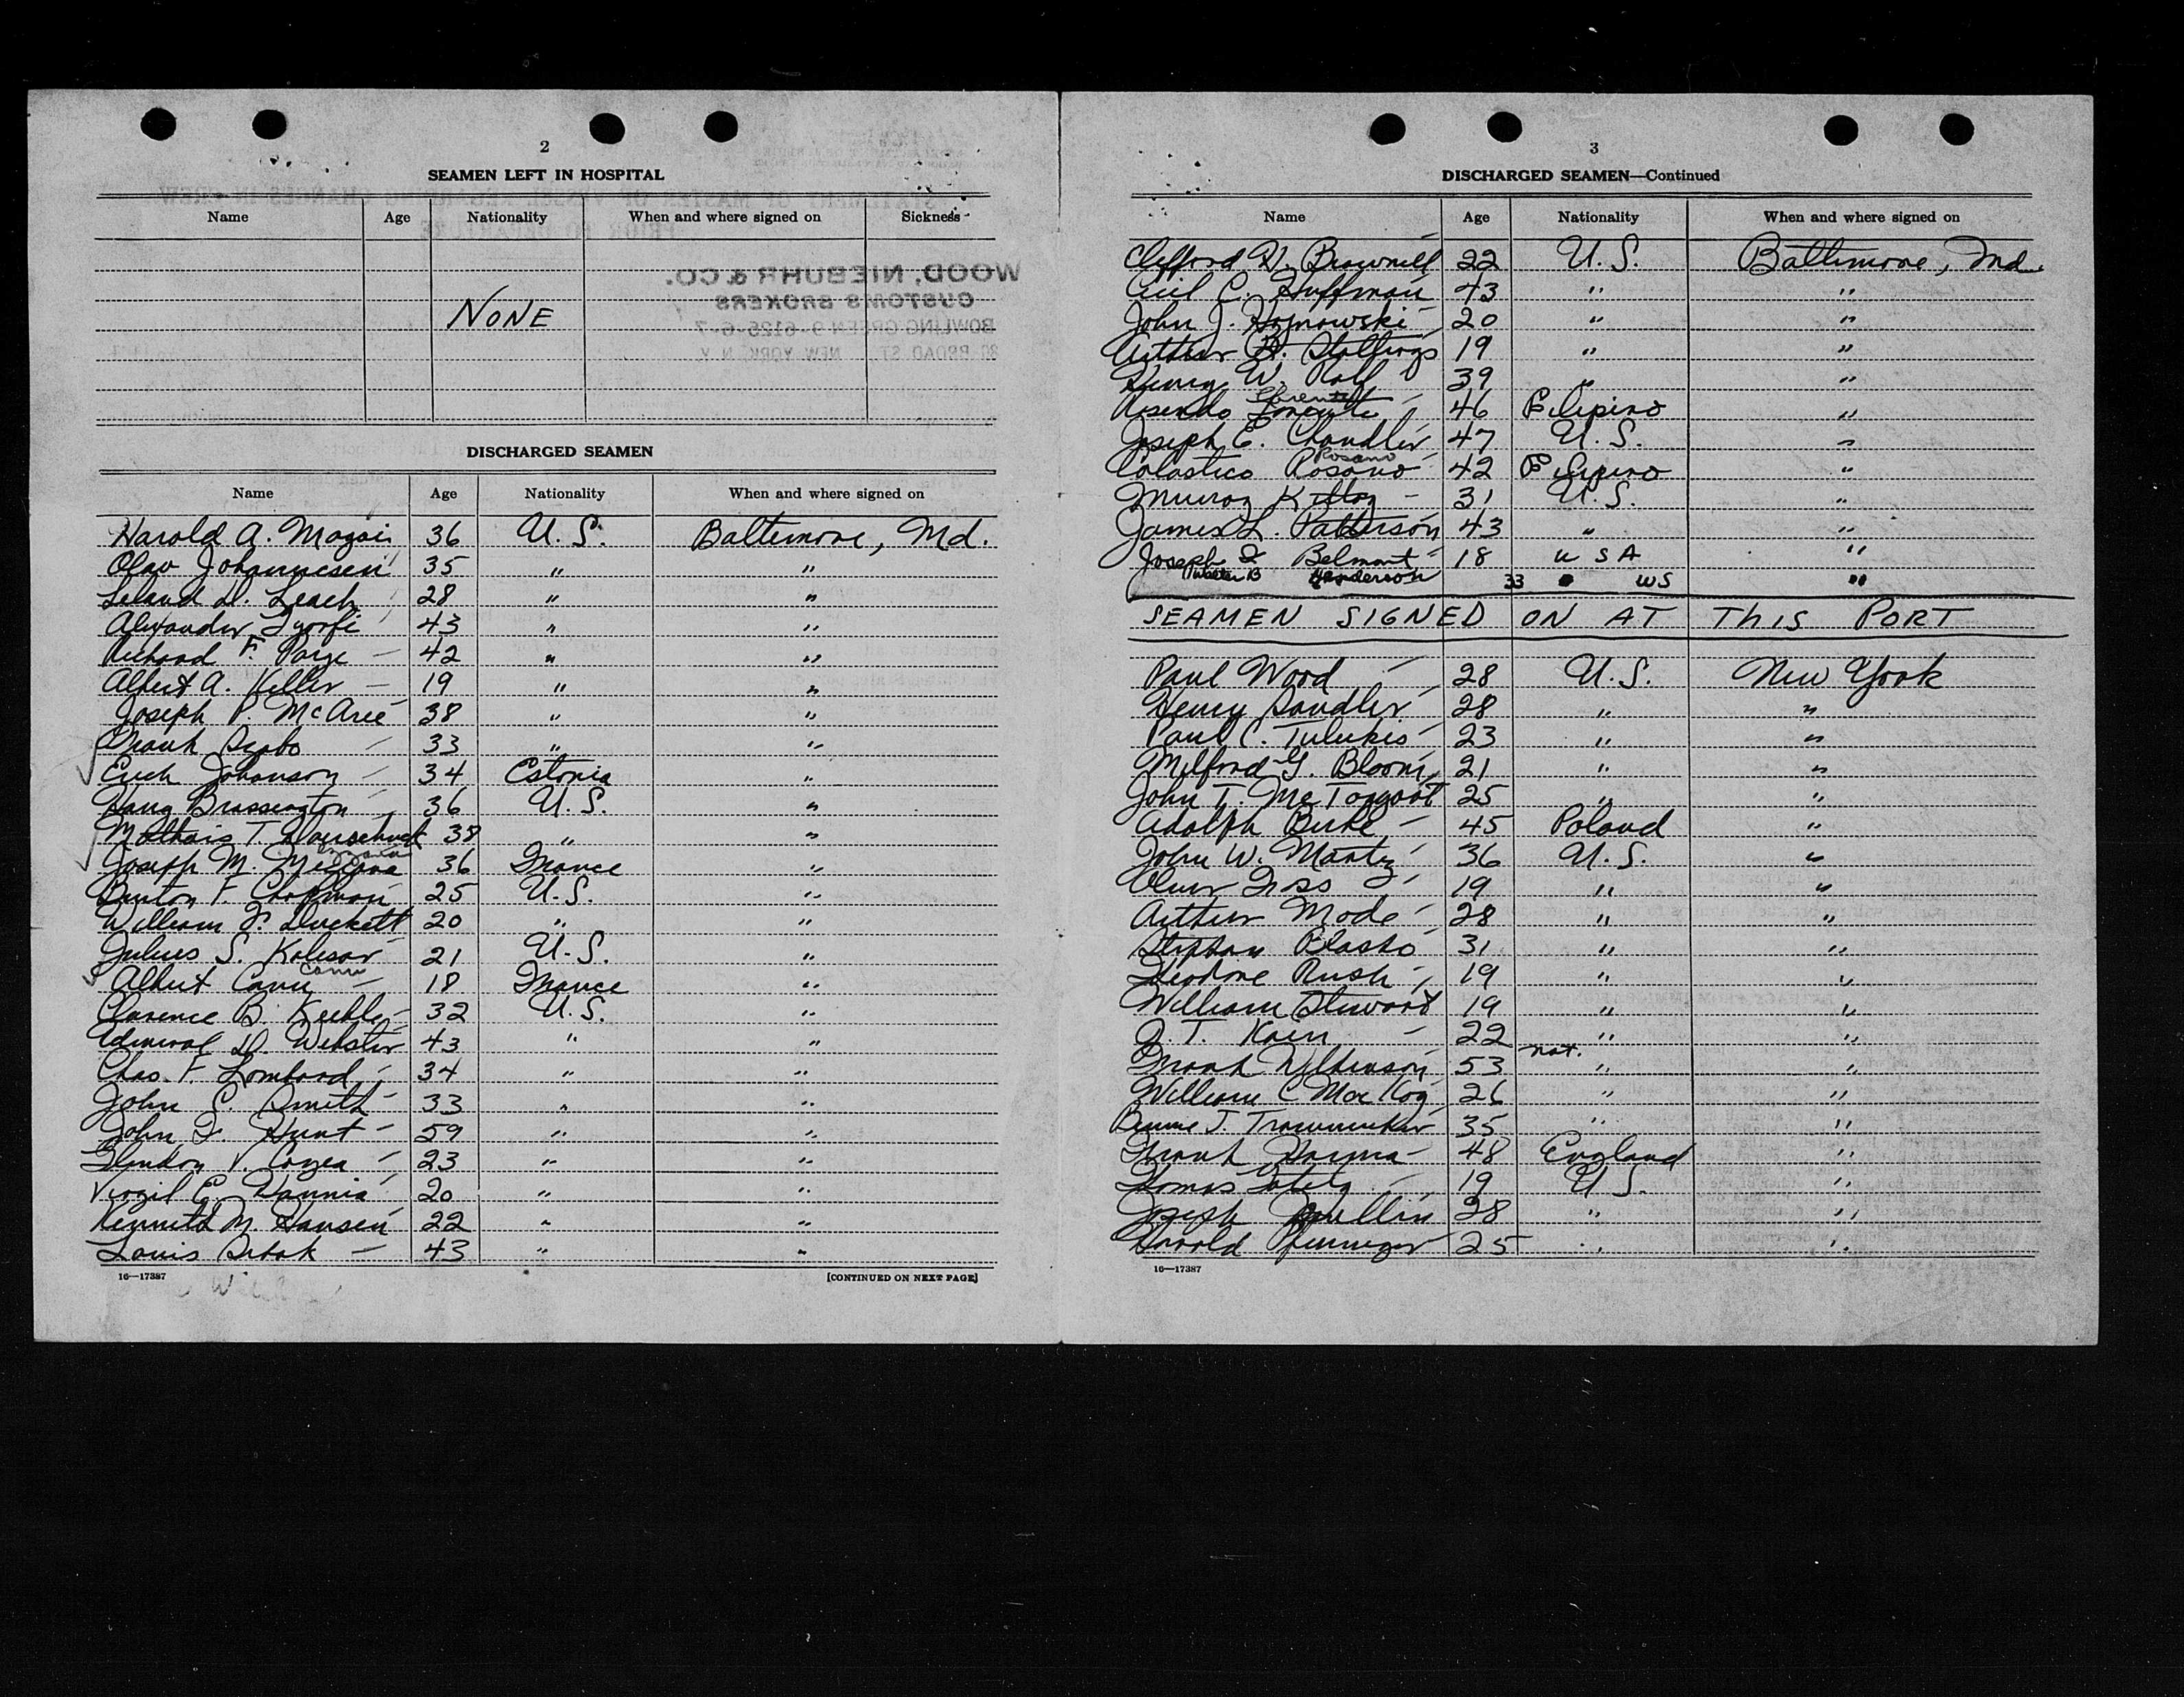 2
SEAMEN LEFT IN HOSPITAL
Name Age Nationality When and where signed on Sickness
NONE
WOOD, NIEBUHR & CO.
CUSTOMS BROKERS
BOWLING GREEN 9-6125-6-7
BROAD ST. NEW YORK, N.Y.
DISCHARGED SEAMEN
Name Age Nationality When and where signed on
Harold A. 36 U.S. Baltimore, Md.
Olav Johannesen 35 " "
Leland D. Leach 28 " "
Alexander Gyorfi 43 " "
Richard F. Paige 42 " "
Albert A. Keller 19 " "
Joseph P. McArie 38 " "
Frank Szabo 33 " "
Erich Johanson 34 Estonia "
Brassington 36 U.S. "
T. 38 " "
Joseph M. 36 France "
F. Chapman 25 U.S. "
William J. Duckett 20 " "
Julius S. Kolesar 21 U.S. "
Canu
Albert Canu 18 France "
Clarence B. Keeble 32 U.S. "
Admiral D. Webster 43 " "
Chas. F. Lombard 34 " "
John S. Smith 33 " "
John Hunt 59 " "
Glendon V. 23 " "
Virgil E. Hannis 20 " "
Kenneth M. Hansen 22 " "
Louis 43 " "
16—17387 [CONTINUED ON NEXT PAGE]
3
DISCHARGED SEAMEN—Continued
Name Age Nationality When and where signed on
Clifford H. Brownell 22 U.S. Baltimore, Md.
Cecil C. Huffman 43 " "
John J. 20 " "
Arthur H. Stallings 19 " "
Henry W. Roll 39 " "
Rosendo 46 Filipino "
Joseph E. Chandler 47 U.S. "
Rosano
Rosano 42 Filipino "
31 U.S. "
James L. Patterson 43 " "
Joseph Belmont 18 U S A "
Walter B Henderson 33 US "
SEAMEN SIGNED ON AT THIS PORT
Paul Wood 28 U.S. New York
Henry Sandler 28 " "
Paul C. Tulukis 23 " "
Milford G. Bloom 21 " "
John T. McTaggart 25 " "
Adolph 45 Poland "
John W. Martz 36 U.S. "
19 " "
Arthur Mode 28 " "
Stephan Blasko 31 " "
Theodore Rush 19 " "
William Steward 19 " "
T. 22 " "
nat.
Frank Wilkinson 53 " "
William C MacKay 26 " "
J. 35 " "
Frank 48 England "
Thomas 19 U.S. "
Joseph Mullin 28 " "
Harold 25 " "
16—17387